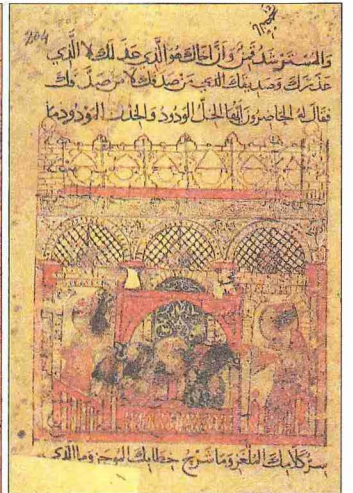 204
والمسترشد قمن وان اخاك هو الذي عذلك لا الذي
عذرك وصديقك الذي من صدقك لا من صدقك
فقال له الحاضرون ايها الخل الودود والخدن المودود ما
سر كلامك الملغز وما شرح خطابك الموجز وما الذي